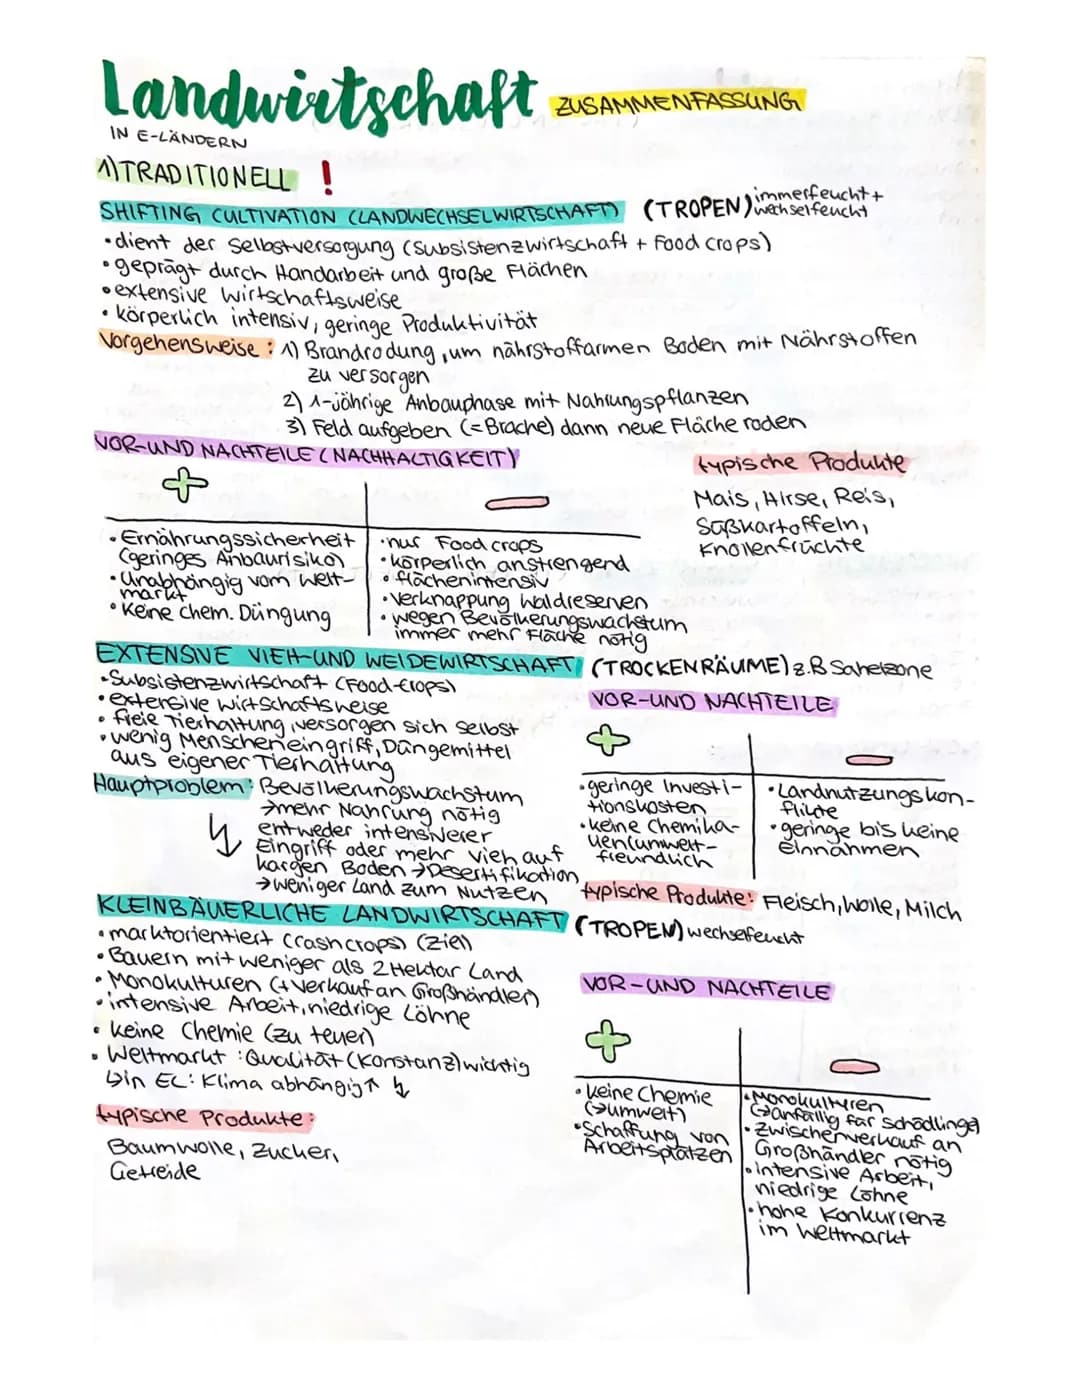 Landwirtschaft ZUSAMMENFASSUNG
IN E-LÄNDERN
1) TRADITIONELL !
SHIFTING CULTIVATION (LANDWECHSELWIRTSCHAFT) (TROPEN) immerfeucht +
wechselfeucht
• dient der Selbstversorgung (Subsistenzwirtschaft + Food crops)
• geprägt durch Handarbeit und große Flächen
• extensive Wirtschaftsweise
• körperlich intensiv, geringe Produktivität
Vorgehensweise: 1) Brandrodung, um nährstoffarmen Boden mit Nährstoffen
zu versorgen
2) 1-jährige Anbauphase mit Nahrungspflanzen
3) Feld aufgeben (=Brache) dann neue Fläche roden
VOR-UND NACHTEILE (NACHHALTIGKEIT)
+ −
• Ernährungssicherheit
(geringes Anbaurisiko)
• Unabhängig vom Welt-
markt
• Keine chem. Düngung
• nur Food crops
• körperlich anstrengend
• flächenintensiv
• Verknappung Waldreserven
• wegen Bevölkerungswachstum
immer mehr Fläche nötig
typische Produkte
Mais, Hirse, Reis,
Süßkartoffeln,
Knollenfrüchte
EXTENSIVE VIEH-UND WEIDEWIRTSCHAFT (TROCKENRÄUME) z.B Sahelzone
• Subsistenzwirtschaft (Food-crops)
• extensive Wirtschaftsweise
• freie Tierhaltung, versorgen sich selbst
• wenig Menscheneingriff, Düngemittel
aus eigener Tierhaltung
Hauptproblem: Bevölkerungswachstum
→ mehr Nahrung nötig
entweder intensiverer
Eingriff oder mehr vieh auf
kargen Boden → Desertifikation
→ weniger Land zum Nutzen
VOR-UND NACHTEILE
+ −
• geringe Investi-
tionskosten
• keine Chemika-
lien (umwelt-
freundlich
• Landnutzungskon-
flikte
• geringe bis keine
Einnahmen
typische Produkte: Fleisch, Wolle, Milch
KLEINBÄUERLICHE LANDWIRTSCHAFT (TROPEN) wechselfeucht
• marktorientiert (cash crops) (Ziel)
• Bauern mit weniger als 2 Hektar Land
• Monokulturen (+ Verkauf an Großhändler)
• intensive Arbeit, niedrige Löhne
• keine Chemie (zu teuer)
• Weltmarkt: Qualität (Konstanz) wichtig
↳ in EL: Klima abhängig ↑
typische Produkte:
Baumwolle, Zucker,
Getreide
VOR-UND NACHTEILE
+ −
• keine Chemie
(→ umwelt)
• Schaffung von
Arbeitsplätzen
• Monokulturen
(→ anfällig für schädlinge)
• Zwischenverkauf an
Großhändler nötig
• intensive Arbeit,
niedrige Löhne
• hohe Konkurrenz
im Weltmarkt